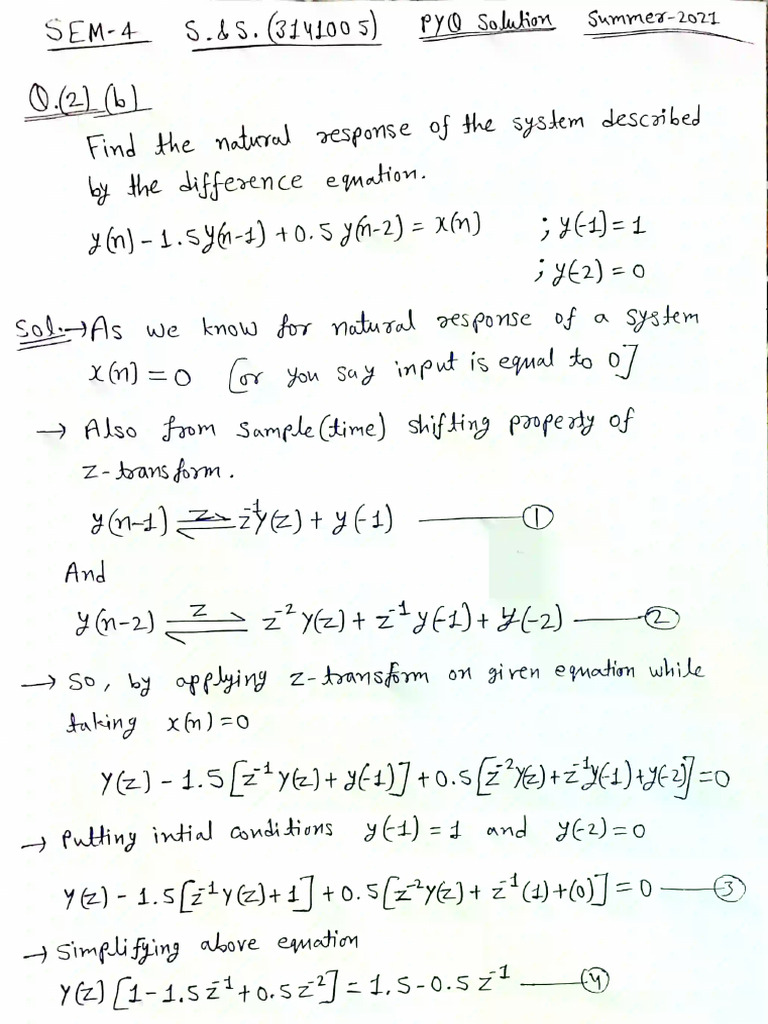 SEM-4 S.&S.(3141005) PYQ Solution Summer-2021
Q.(2) (b)
Find the natural response of the system described
by the difference equation.
y(n)-1.5y(n-1)+0.5y(n-2)= x(n) ; y(-1)=1
; y(-2)=0
Sol.→As we know for natural response of a system
x(n)=0 [or you say input is equal to 0]
→ Also from sample(time) shifting property of
z-transform.
y(n-1) ⇌ᶻ z⁻¹Y(z)+ y(-1) —— ①
And
y(n-2) ⇌ᶻ z⁻²Y(z)+ z⁻¹y(-1)+ y(-2) —— ②
→ So, by applying z-transform on given equation while
taking x(n)=0
Y(z) - 1.5[z⁻¹Y(z)+ y(-1)]+0.5[z⁻²Y(z)+z⁻¹y(-1)+y(-2)]=0
→ Putting intial conditions y(-1)=1 and y(-2)=0
Y(z) - 1.5[z⁻¹Y(z)+1]+0.5[z⁻²Y(z)+ z⁻¹(1)+(0)]=0 —— ③
→ Simplifying above equation
Y(z)[1-1.5z⁻¹+0.5z⁻²]=1.5-0.5z⁻¹ —— ④